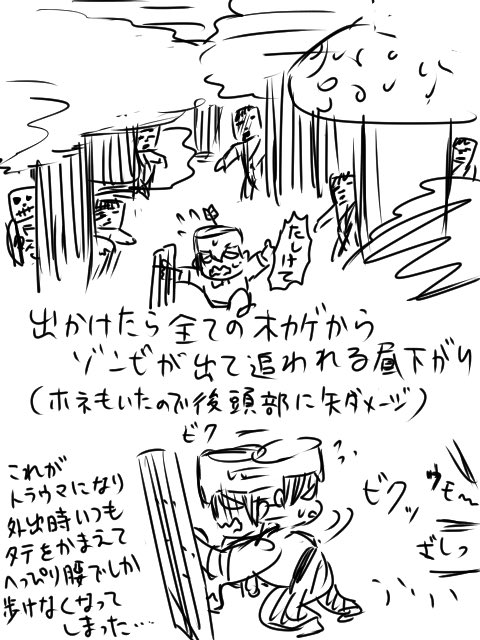 たしけて
出かけたら全ての木カゲから
ゾンビが出て追われる昼下がり
(ホネもいたので後頭部に矢ダメージ)
ビク
これが
トラウマになり
外出時いつも
タテをかまえて
へっぴり腰でしか
歩けなくなって
しまった…
ビクッ
ヴモ〜
ざしっ